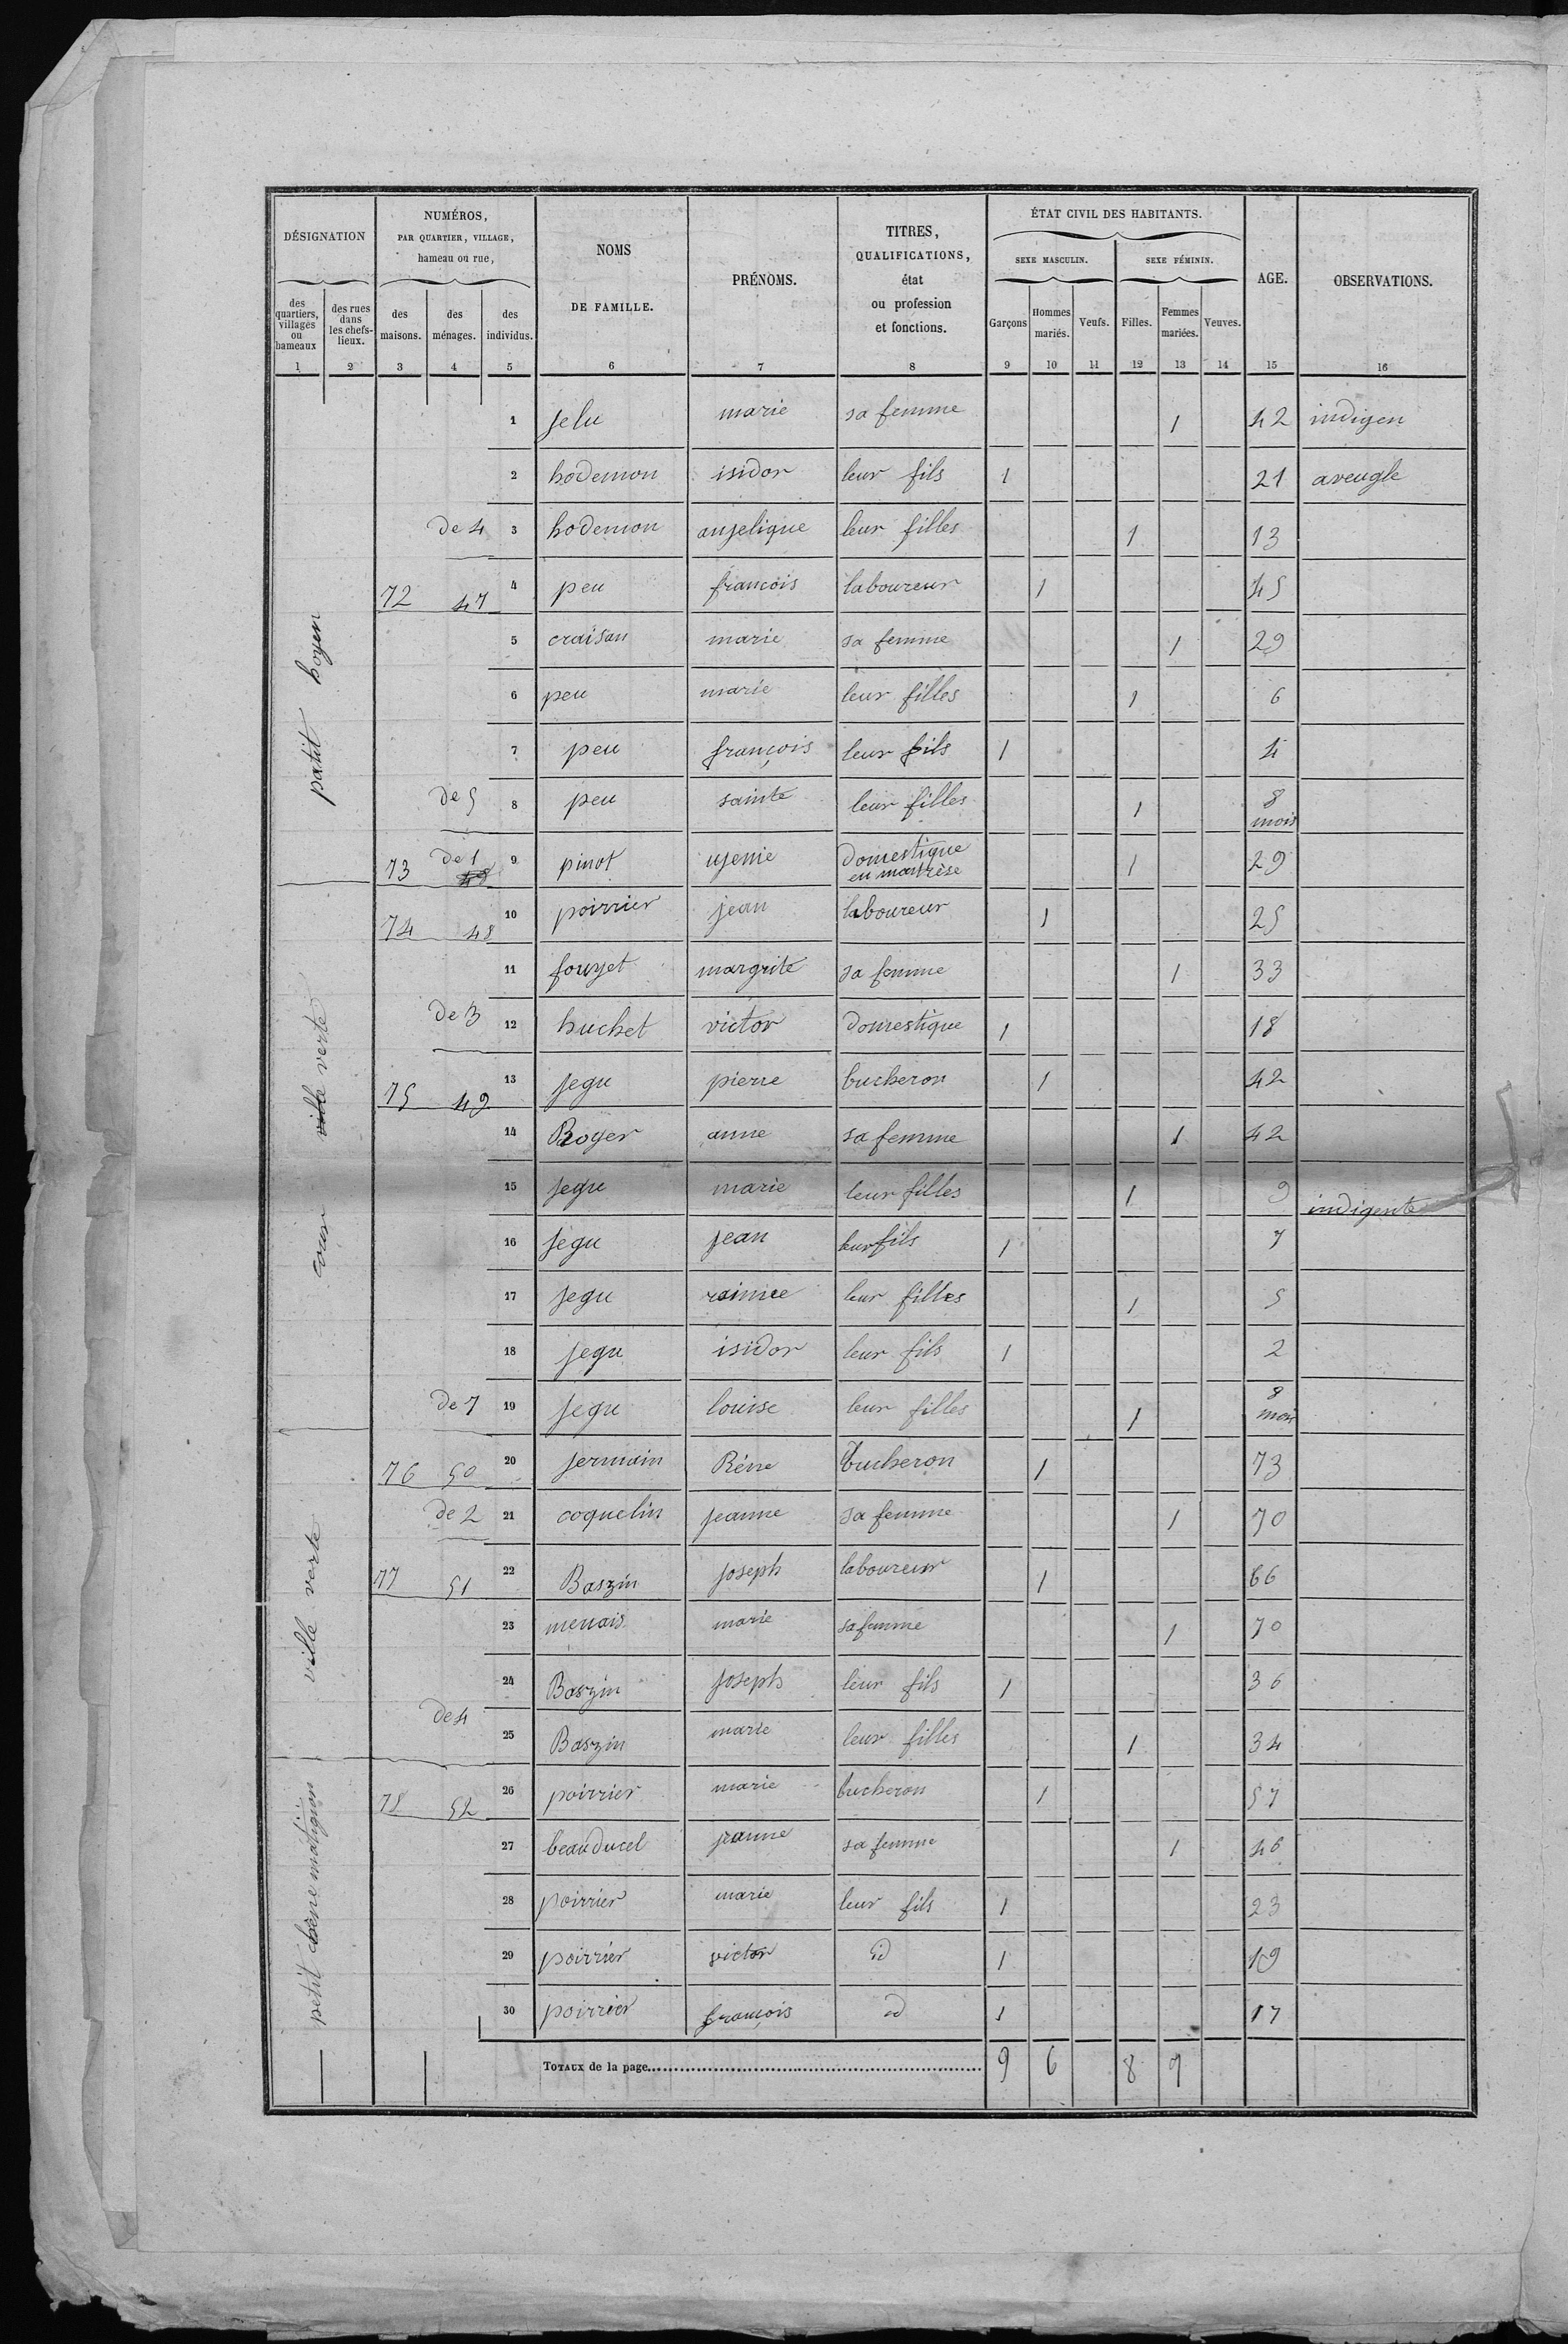 DÉSIGNATION
NUMÉROS,
PAR QUARTIER, VILLAGE,
hameau ou rue,
NOMS
DE FAMILLE.
PRÉNOMS.
TITRES,
QUALIFICATIONS,
état
ou profession
et fonctions.
ÉTAT CIVIL DES HABITANTS.
SEXE MASCULIN.
SEXE FÉMININ.
AGE.
OBSERVATIONS.
des
quartiers,
villages
ou
hameaux
des rues
dans
les chefs-
lieux.
des
maisons.
des
ménages.
des
individus.
Garçons
Hommes
mariés.
Veufs.
Filles.
Femmes
mariées.
Veuves.
1 2 3 4 5 6 7 8 9 10 11 12 13 14 15 16
patit hoyen
1 jelu marie sa femme 1 42 indigen
2 hodemon isidor leur fils 1 21 aveugle
de 4 3 hodemon anjelique leur filles 1 13
72 47 4 peu francois laboureur 1 45
5 craisan marie sa femme 1 29
6 peu marie leur filles 1 6
7 peu françois leur fils 1 4
de 5 8 peu sainte leur filles 1 8 mois
73 de 1 9 pinot ujenie domestique 1 29
cour ville verte
74 48 10 poirrier jean laboureur 1 25
11 foujet margrite sa femme 1 33
de 3 12 huchet victor domestique 1 18
75 49 13 jegu pierre bucheron 1 42
14 Royer anne sa femme 1 42
15 jegu marie leur filles 1 9 indigente
16 jegu jean leur fils 1 7
17 jegu raimee leur filles 1 5
18 jegu isidor leur fils 1 2
de 7 19 jegu louise leur filles 1 8 mois
ville verte
76 50 20 jermain Réne bucheron 1 73
de 2 21 coquelin jeanne sa femme 1 70
77 51 22 Baszin joseph laboureur 1 66
23 menais marie sa femme 1 70
24 Baszin joseph leur fils 1 36
de 4 25 Baszin marie leur filles 1 34
petit chêne matignon
78 52 26 poirrier marie bucheron 1 57
27 beauducel jeanne sa femme 1 46
28 poirrier marie leur fils 1 23
29 poirrier victor id 1 19
30 poirrier françois id 1 17
TOTAUX de la page 9 6 8 7